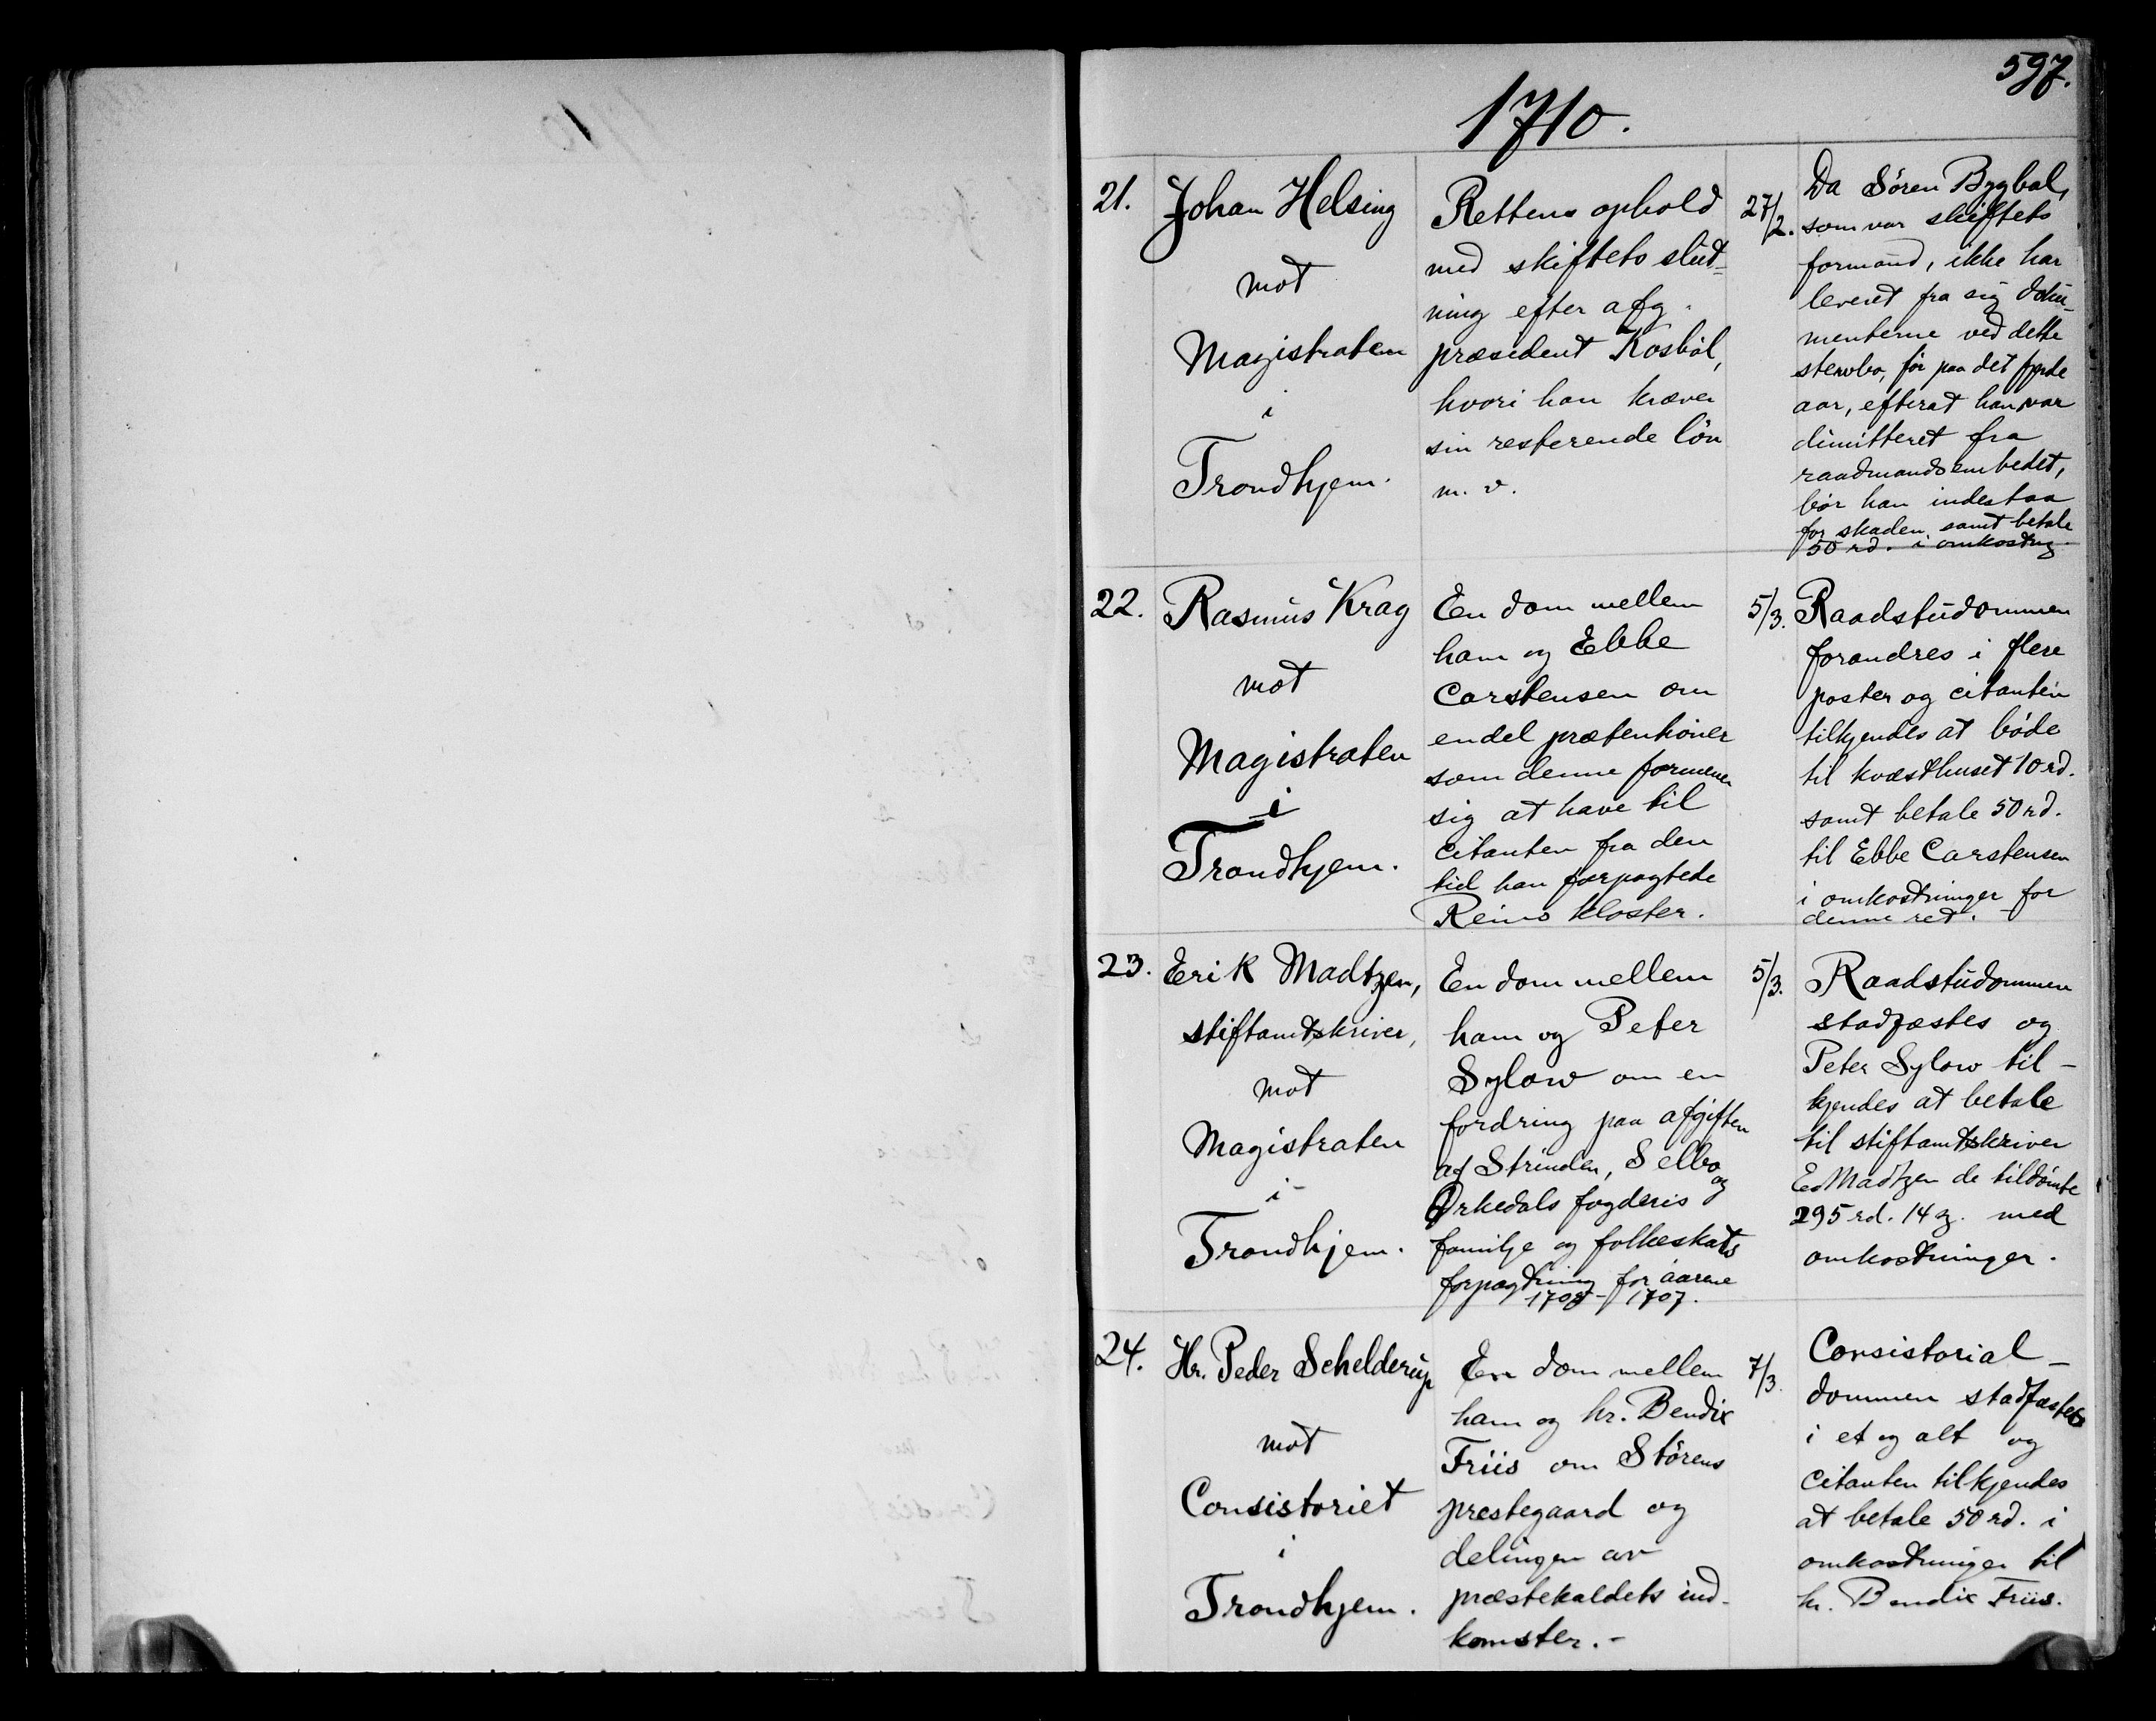 597.
1710.
21.
Johan Helsing
mot
Magistraten
i
Trondhjem.
Rettens ophold
med skiftets slut-
ning efter afg.
præsident Kosböl,
hvori han kræver
sin resterende lön
m. v.
27/2.
Da Sören Bygbal,
som var skiftets
formand, ikke har
leveret fra sig doku-
menterne ved dette
stervbo, för paa det fjerde
aar, efterat han var
dimitteret fra
raadmandsembedet,
bör han indestaa
for skaden, samt betale
50 rd. i omkostng
22.
Rasmus Krag
mot
Magistraten
i
Trondhjem.
En dom mellem
ham og Ebbe
Carstensen om
endel prætentioner
som denne formener
sig at have til
citanten fra den
tid han forpagtede
Reins kloster.
5/3.
Raadstudommen
forandres i flere
poster og citanten
tilkjendes at böde
til kvæsthuset 10 rd.
samt betale 50 rd.
til Ebbe Carstensen
i omkostninger for
denne ret.
23.
Erik Madtzen,
stiftamtskriver,
mot
Magistraten
i
Trondhjem.
En dom mellem
ham og Peter
Sylow om en
fordring paa afgiften
af Strinden, Selbo og
Orkedals fogderis
familje og folkeskats
forpagtning for aarene
- 1707.
5/3.
Raadstudommen
stadfæstes og
Peter Sylow til-
kjendes at betale
til stiftamtskriver
E. Madtzen de tildömte
295 rd. 14 ẞ. med
omkostninger.
24.
Hr. Peder Schelderup
mot
Consistoriet
i
Trondhjem.
En dom mellem
ham og hr. Bendix
Friis om Störens
prestegaard og
delingen av
præstekaldets ind-
komster.-
7/3.
Consistorial-
dommen stadfæstes
i et og alt og
citanten tilkjendes
at betale 50 rd. i
omkostninger til
hr. Bendix Friis.